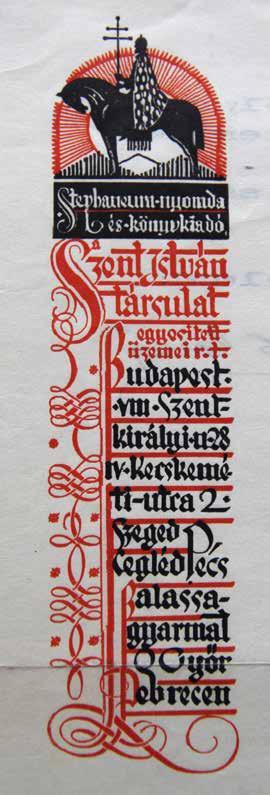 Stephaneum-nyomda
és-könyvkiadó.
a
Szent István
társulat
egyesitett
üzemei r.-t.
Budapest·
·VIII·Szent-
királyi-u·28
IV·Kecskemé-
ti-utca 2·
Szeged
Cegléd Pécs
Balassa-
gyarmat
Győr
Debrecen